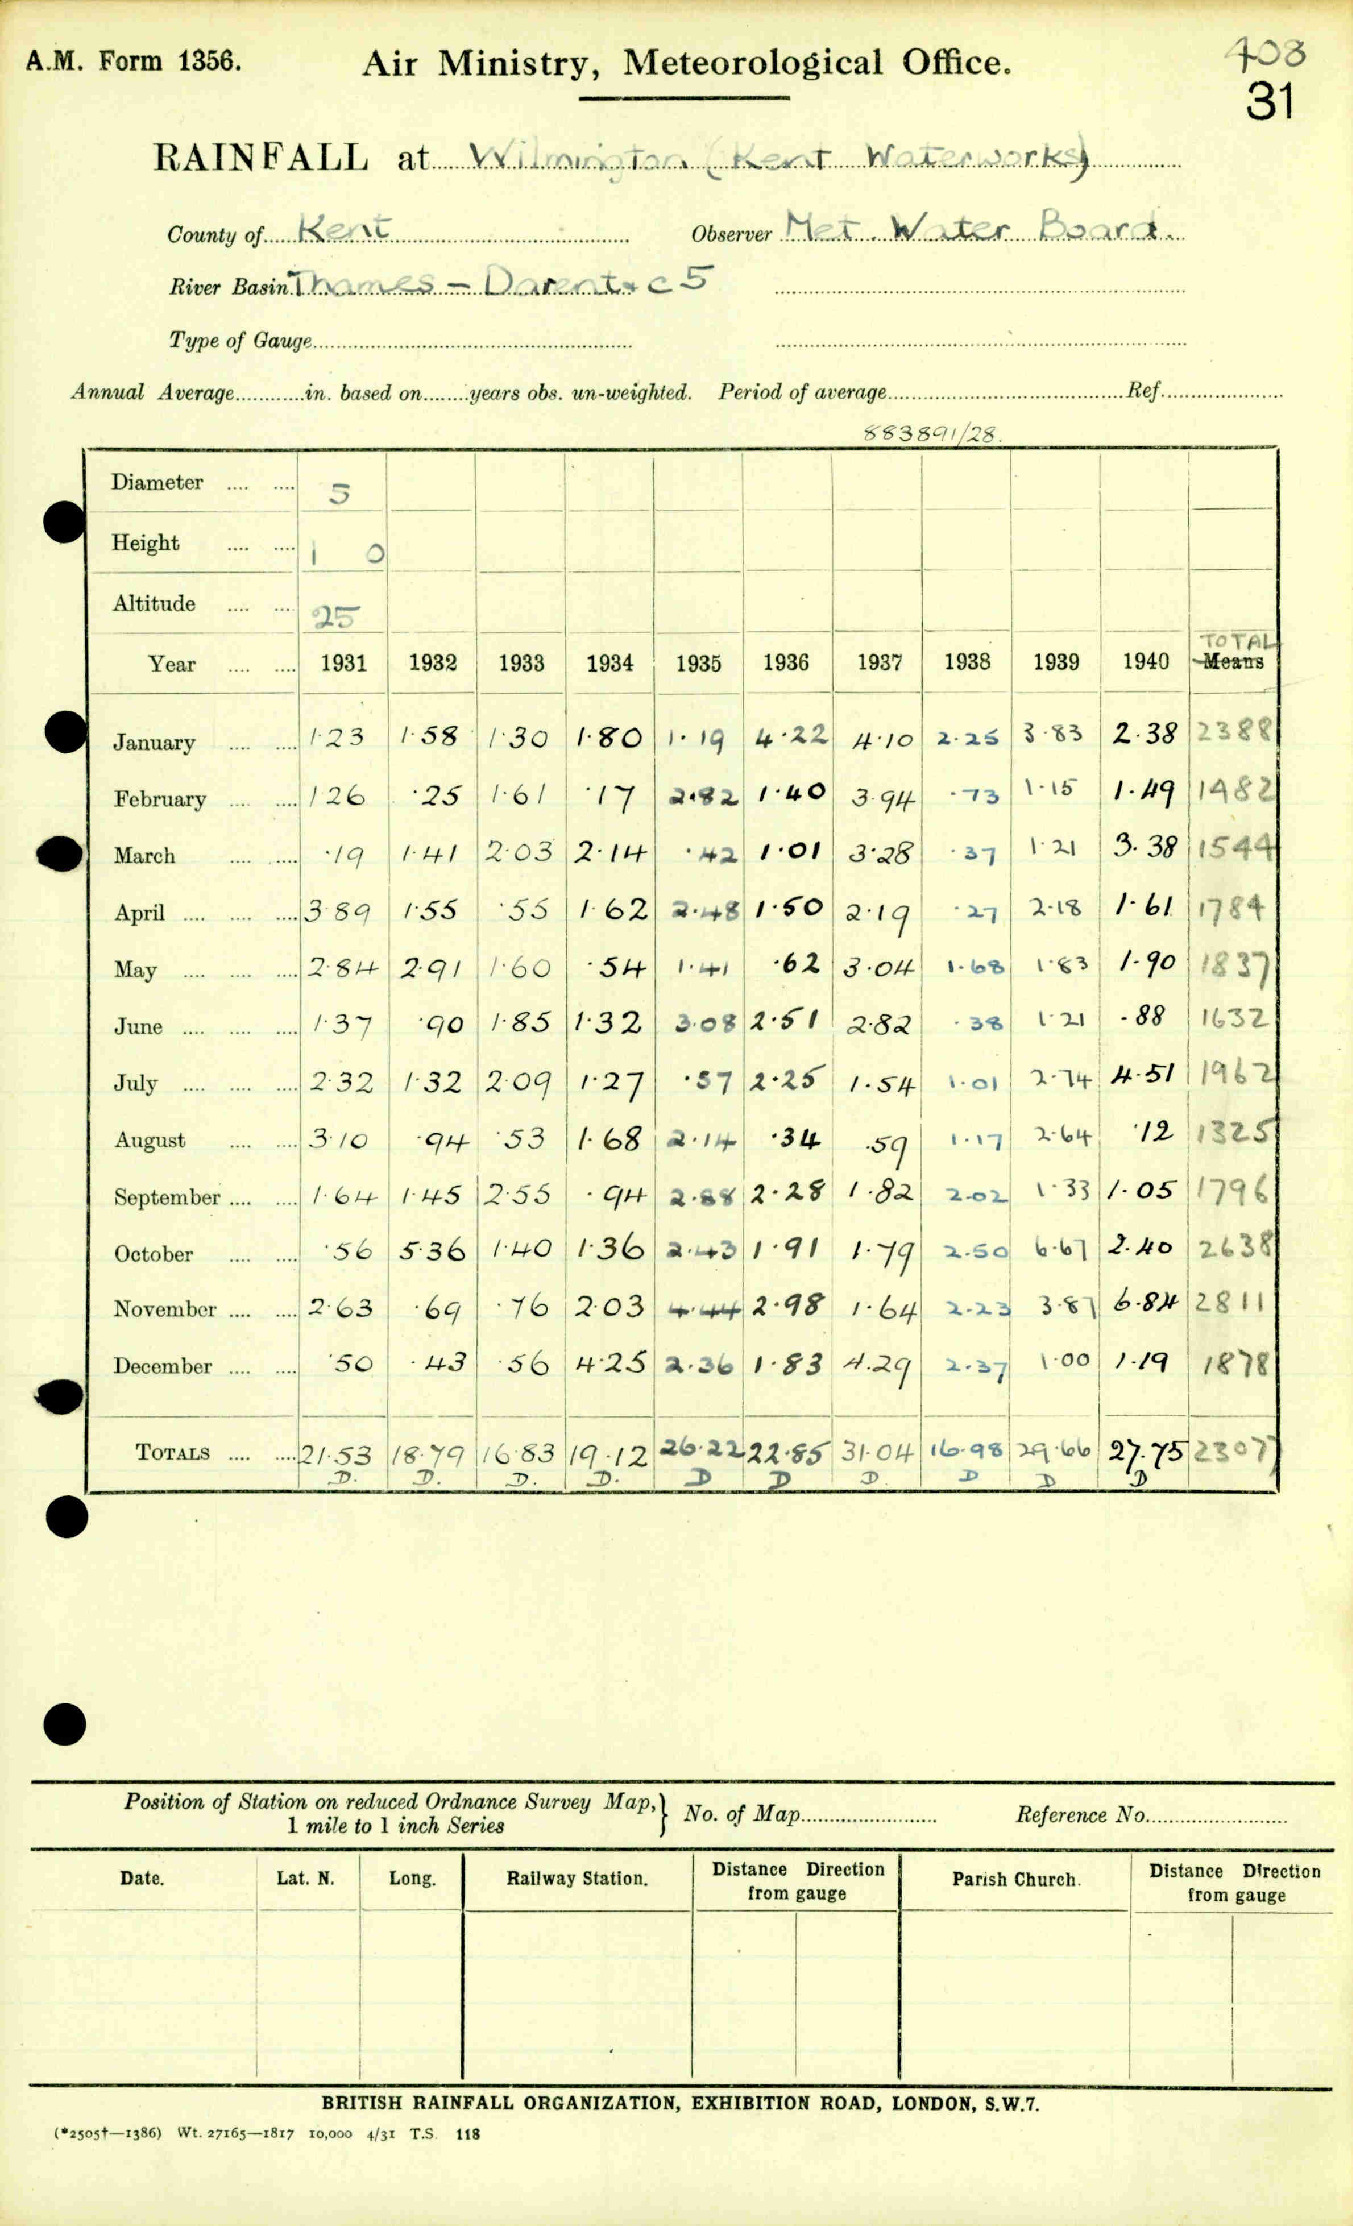 A.M. Form 1356. Air Ministry, Meteorological Office. 408
31
RAINFALL at Wilmington (Kent Waterworks)
County of Kent Observer Met. Water Board.
River Basin Thames - Darent C5
Type of Gauge
Annual Average in. based on years obs. un-weighted. Period of average Ref.
883891/28.
Diameter 5
Height 1 0
Altitude 25
TOTAL
Year 1931 1932 1933 1934 1935 1936 1937 1938 1939 1940 Means
January 1.23 1.58 1.30 1.80 1.19 4.22 4.10 2.25 3.83 2.38 2388
February 1.26 .25 1.61 .17 2.82 1.40 3.94 .73 1.15 1.49 1482
March .19 1.41 2.03 2.14 .42 1.01 3.28 .37 1.21 3.38 1544
April 3.89 1.55 .55 1.62 2.48 1.50 2.19 .27 2.18 1.61 1784
May 2.84 2.91 1.60 .54 1.41 .62 3.04 1.68 1.83 1.90 1837
June 1.37 .90 1.85 1.32 3.08 2.51 2.82 .38 1.21 .88 1632
July 2.32 1.32 2.09 1.27 .57 2.25 1.54 1.01 2.74 4.51 1962
August 3.10 .94 .53 1.68 2.14 .34 .59 1.17 2.64 .12 1325
September 1.64 1.45 2.55 .94 2.88 2.28 1.82 2.02 1.33 1.05 1796
October .56 5.36 1.40 1.36 2.43 1.91 1.79 2.50 6.67 2.40 2638
November 2.63 .69 .76 2.03 4.44 2.98 1.64 2.23 3.87 6.84 2811
December .50 .43 .56 4.25 2.36 1.83 4.29 2.37 1.00 1.19 1878
TOTALS 21.53 18.79 16.83 19.12 26.22 22.85 31.04 16.98 29.66 27.75 23077
D. D. D. D. D D D. D D D
Position of Station on reduced Ordnance Survey Map, 1 mile to 1 inch Series } No. of Map Reference No.
Date. Lat. N. Long. Railway Station. Distance Direction from gauge Parish Church. Distance Direction from gauge
BRITISH RAINFALL ORGANIZATION, EXHIBITION ROAD, LONDON, S.W.7.
(*2505†—1386) Wt. 27165—1817 10,000 4/31 T.S. 118